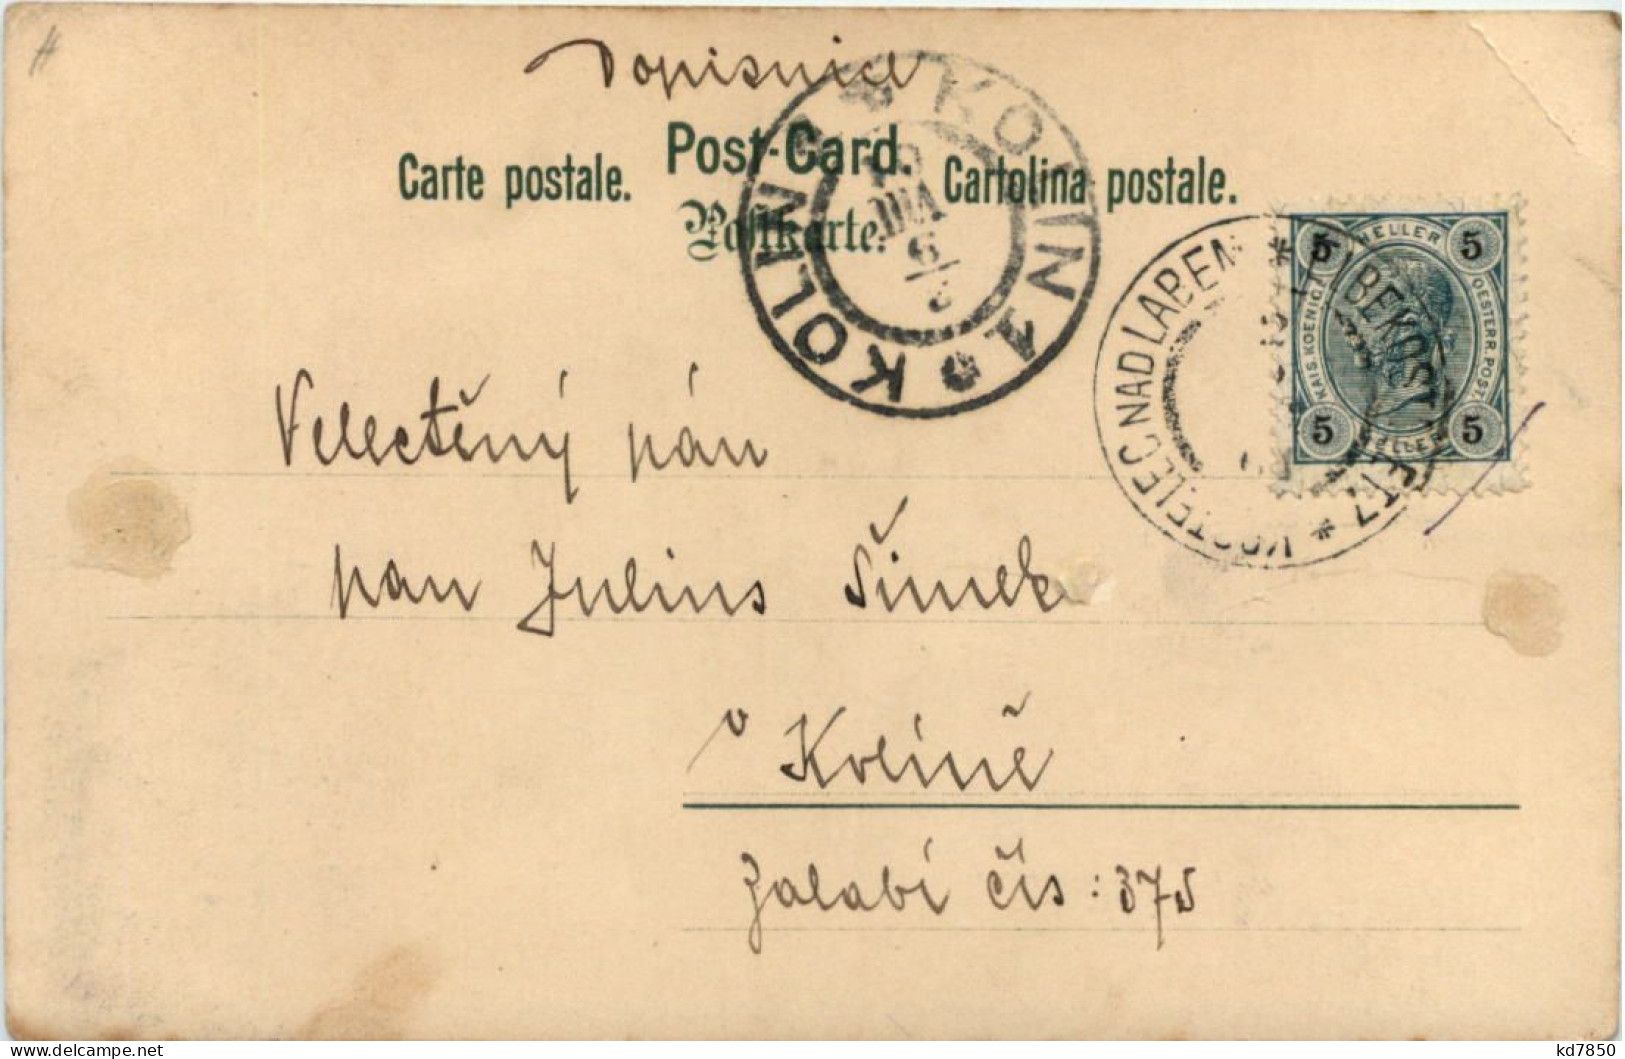 Dopisnice
Carte postale. Post-Card. Cartolina postale.
Postkarte.
KOLIN 1 KOLIN 1
VIII
KOSTELEC NAD LABEM * ELBEKOSTELETZ *
5 HELLER 5
KAIS. KOENIGL. OESTERR. POST.
5 HELLER 5
Velectěný pán
pan Julius Šimek
v Kolíně
Zalabí čís: 375
kd7850